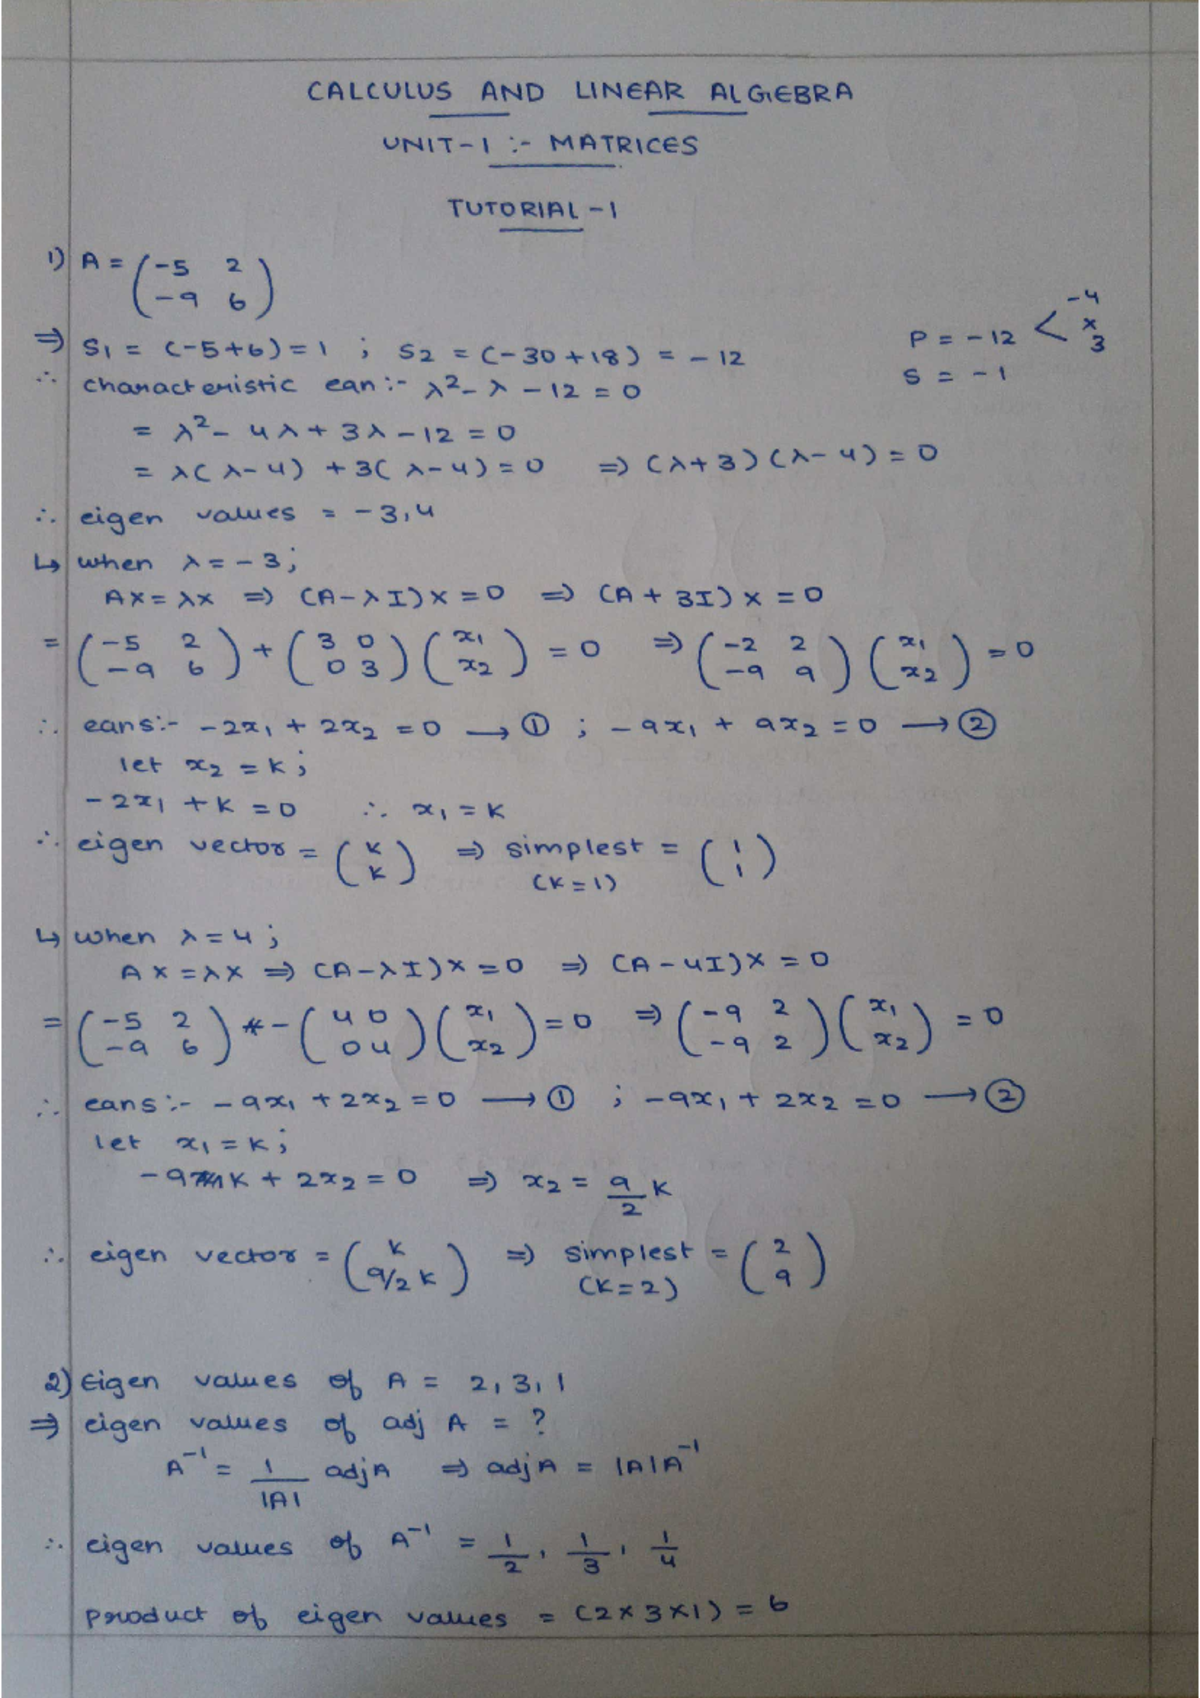 CALCULUS AND LINEAR ALGEBRA
UNIT-1 :- MATRICES
TUTORIAL-1
1) A = (-5 2
-9 6)
⇒ S1 = (-5+6)=1 ; S2 = (-30+18) = -12
P = -12 < -4
x
3
S = -1
∴ characteristic eqn:- λ² - λ - 12 = 0
= λ² - 4λ + 3λ - 12 = 0
= λ(λ-4) + 3(λ-4) = 0 ⇒ (λ+3)(λ-4) = 0
∴ eigen values = -3,4
↳ when λ = -3;
AX = λX ⇒ (A-λI)X = 0 ⇒ (A + 3I)X = 0
= (-5 2
-9 6) + (3 0
0 3) (x1
x2) = 0 ⇒ (-2 2
-9 9) (x1
x2) = 0
∴ eqns:- -2x1 + 2x2 = 0 → ① ; -9x1 + 9x2 = 0 → ②
let x2 = k;
-2x1 + k = 0 ∴ x1 = k
∴ eigen vector = (k
k) ⇒ simplest = (1
1)
(k=1)
↳ when λ = 4;
AX = λX ⇒ (A-λI)X = 0 ⇒ (A-4I)X = 0
= (-5 2
-9 6) - (4 0
0 4) (x1
x2) = 0 ⇒ (-9 2
-9 2) (x1
x2) = 0
∴ eqns:- -9x1 + 2x2 = 0 → ① ; -9x1 + 2x2 = 0 → ②
let x1 = k;
-9k + 2x2 = 0 ⇒ x2 = 9/2 k
∴ eigen vector = (k
9/2 k) ⇒ simplest = (2
9)
(k=2)
2) Eigen values of A = 2,3,1
⇒ eigen values of adj A = ?
A⁻¹ = 1/|A| adjA ⇒ adjA = |A|A⁻¹
∴ eigen values of A⁻¹ = 1/2, 1/3, 1/4
product of eigen values = (2×3×1) = 6